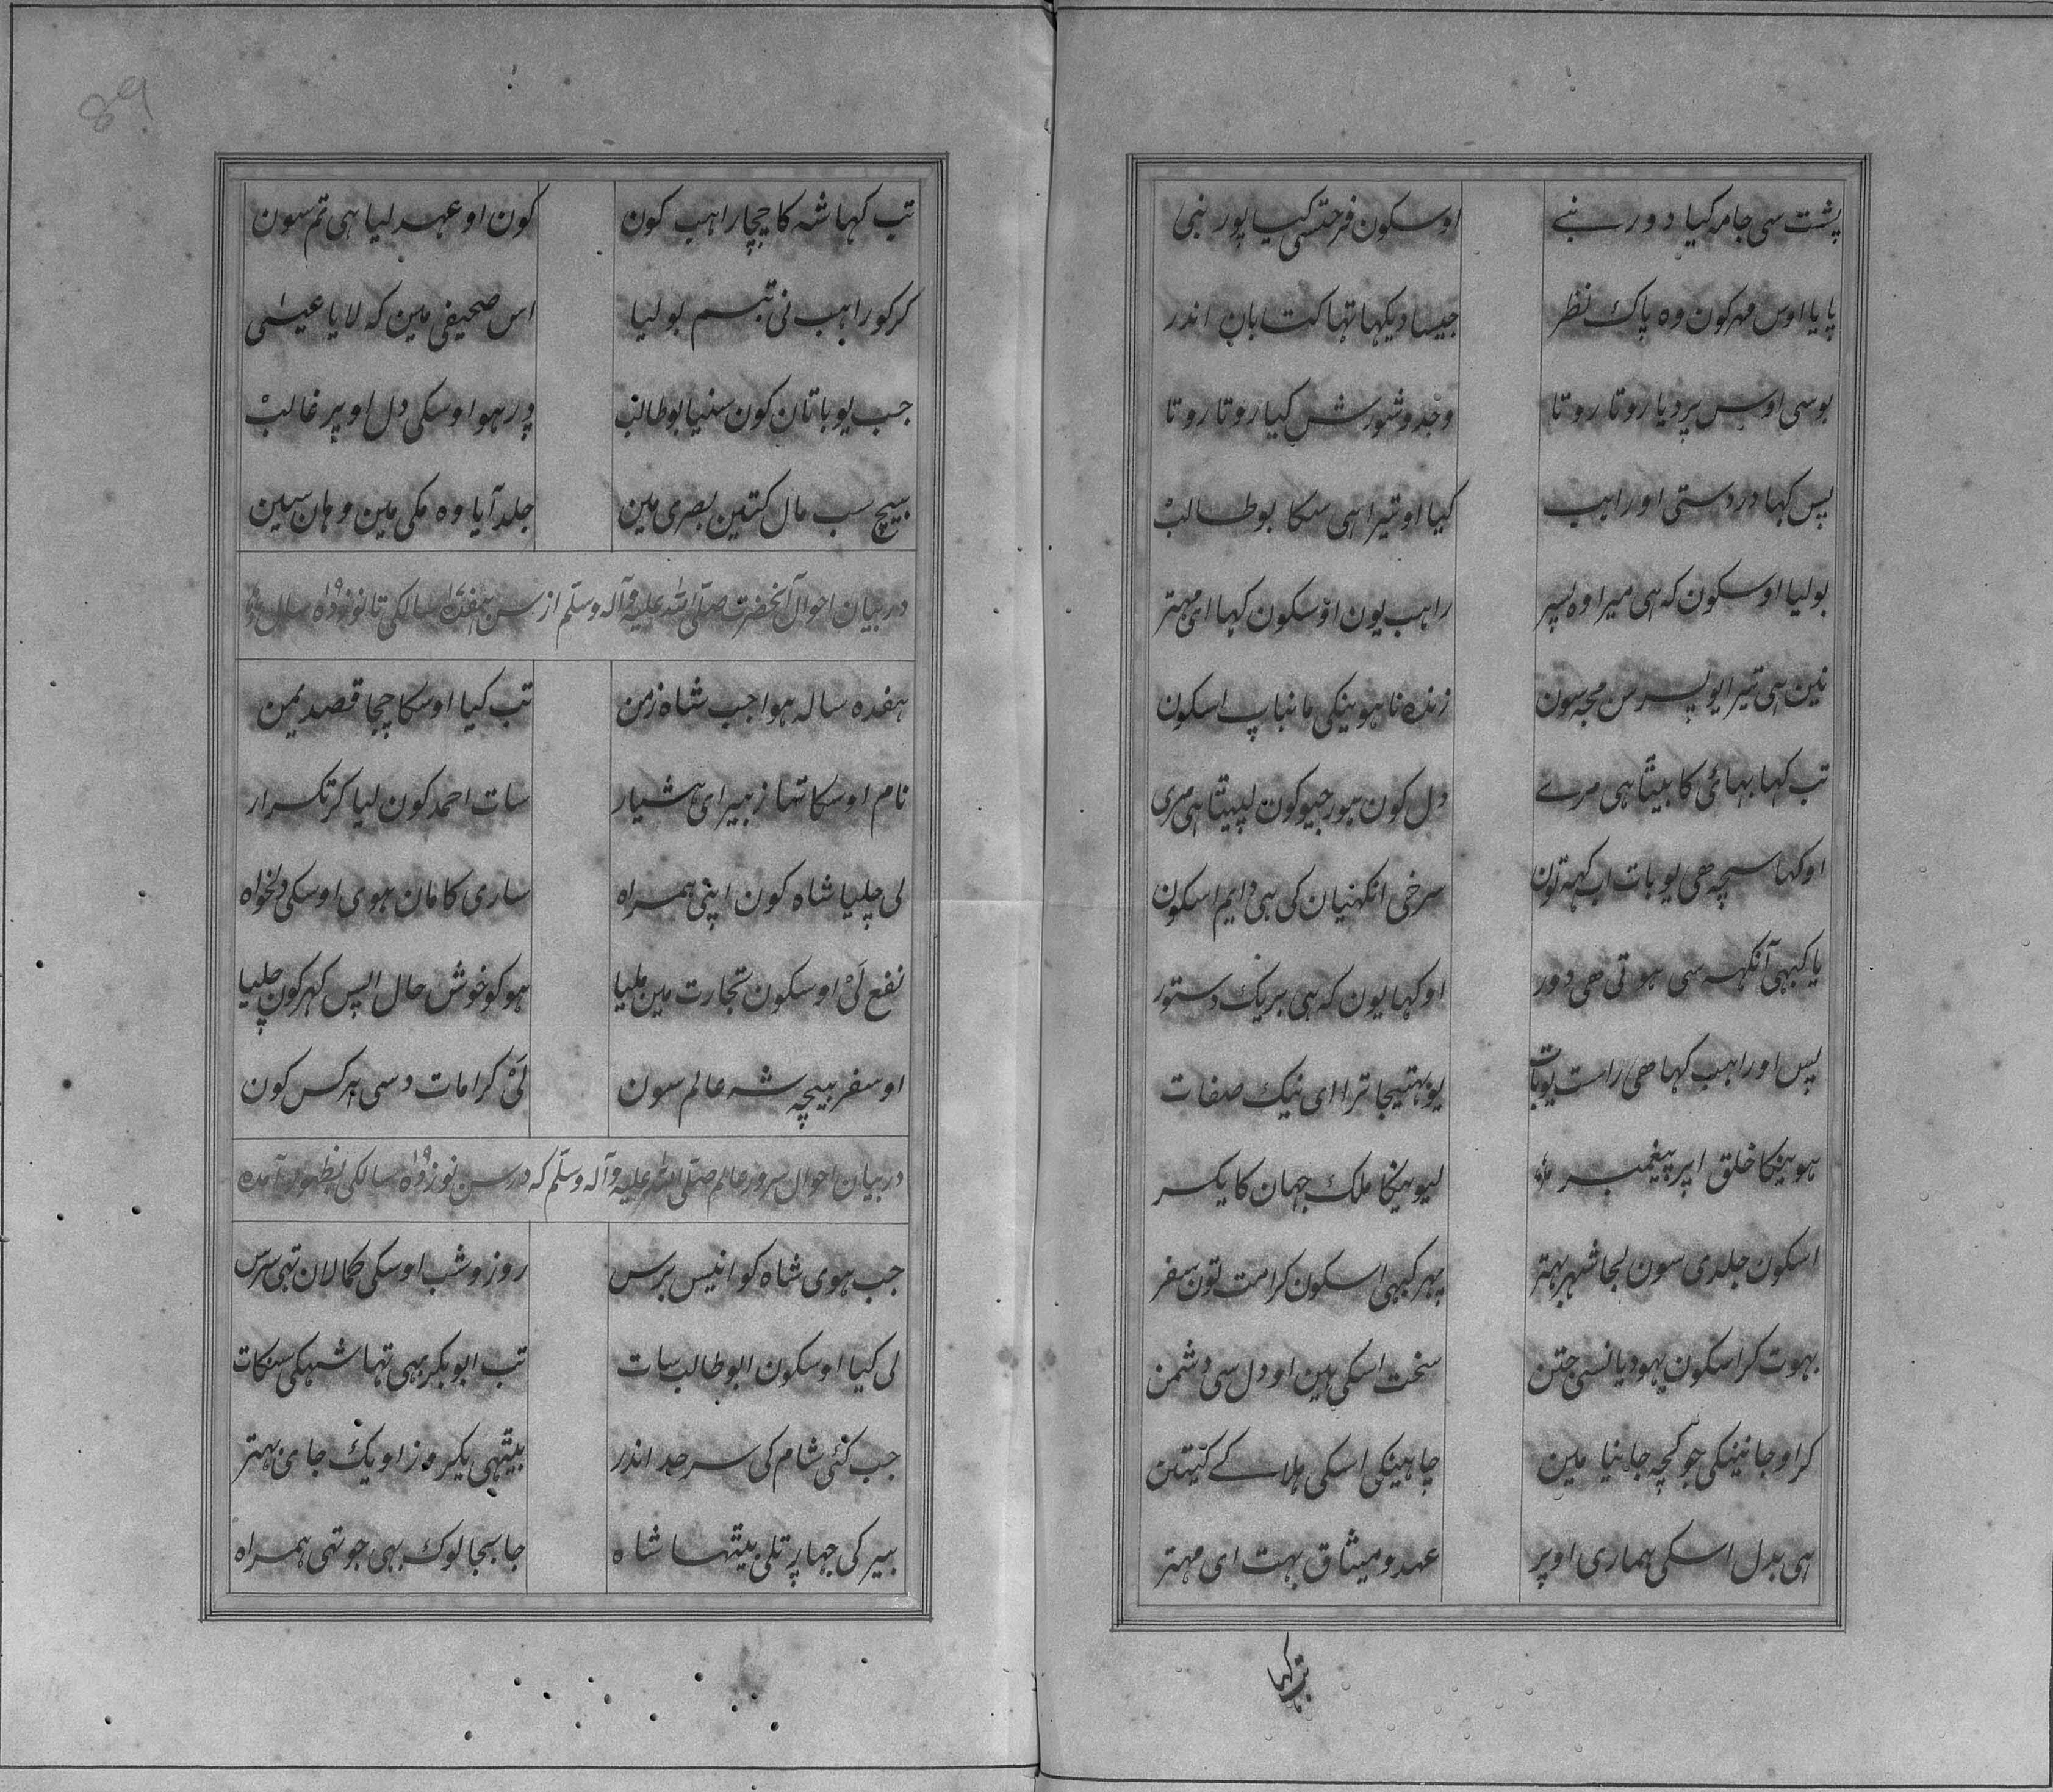 پشت سی جامہ کیا دور نبے اوسکون فرحتسی کیا پور نبی
پایا اوس مہر کون وہ پاک نظر جیسا دیکہا تہا کتابان اندر
بوسی اوس پر دیا روتا روتا وجد و شورش کیا روتا روتا
پس کہا دردستی او راہب کیا او تیرا ہی سکا بوطالب
بولیا اوسکون کہ ہی میرا وہ پسر راہب یون اوسکون کہا ای مہتر
نین ہی تیرا یو پسر سن مجہ سون زندہ نا ہوینکی مانباپ اسکون
تب کہا بہائی کا بیتا ہی مرے دل کون ہور جیو کون لپیتا ہی مری
او کہا سچہ ہی یو بات اب کہہ تون سرخی انکہنیان کی ہی دایم اسکون
یا کبہی آنکہہ سی ہوتی ہی دور او کہا یون کہ ہی بریک دستور
پس او راہب کہا ہی راست یو بات یو بہتیجا ترا ای نیک صفات
ہوینکا خلق اپر پیغمبر لیوینکا ملک جہان کا یکسر
اسکون جلدی سون لیجا شہر بہتر پہر کبہی اسکون کرا مت تون سفر
بہوت کر اسکون یہودیانسی جتن سخت اسکی ہین او دل سی دشمن
کر او جانینکی جو کچہ جانیا مین چاہینکی اسکی ہلاکے کیتین
ہی بدل اسکی ہماری اوپر عہد و میثاق بہت ای مہتر
تب کہا
89
تب کہا شہ کا چچا راہب کون کون او عہد لیا ہی تم سون
کر کو راہب نی تبسم بولیا اس صحیفی مین کہ لایا عیسٰی
جب یو باتان کون سنیا بوطالب ڈر ہوا اوسکی دل اوپر غالب
بیچ سب مال کتین بصری مین جلد آیا وہ مکی مین وہان سین
در بیان احوال آنحضرت صلّی اللہ علیہ وآلہ وسلّم از سن ہفدہ سالکی تا نوزدہ سال
ہفدہ سالہ ہوا جب شاہ زمن تب کیا اوسکا چچا قصد یمن
نام اوسکا تہا زبیر ای ہشیار سات احمد کون لیا کر تکرار
لی چلیا شاہ کون اپنی ہمراہ ساری کامان ہوی اوسکی دلخواہ
نفع لَیْ اوسکون تجارت مین ملیا ہو کو خوش حال اپس کہر کون چلیا
او سفر بیچہ شہ عالم سون لَیْ کرامات دسی ہر کس کون
در بیان احوال سرور عالم صلّی اللہ علیہ وآلہ وسلّم کہ در سن نوزدہ سالکی بظہور آمدہ
جب ہوی شاہ کو انیس برس روز و شب اوسکی کمالان تہی سرس
لی کیا اوسکون ابوطالب سات تب ابوبکر بہی تہا شہکی سنکات
جب کئی شام کی سرحد اندر بیتہی یکروز او یک جای بہتر
بیر کی جہاڑ تلی بیتہا شاہ جابجا لوک بہی جو تہی ہمراہ